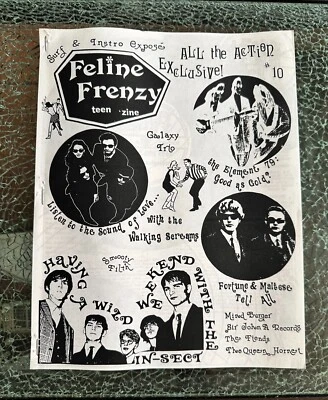 Surf & Instro Exposé
ALL the ACTiON
EXCLUSiVE!
#10
Feline
Frenzy
teen 'zine
Galaxy
Trio
the Element 79-
"Good as Gold"
Listen to the Sound of Love...
with the
Walking Screams
Smooty
Filth
HAVING A WiLD WEEKEND WiTH THE
IN-SECT
Fortune & Maltese
Tell All
Mixed Burger
Sir John A Records
Thee Fiends
Thee Queen Hornet